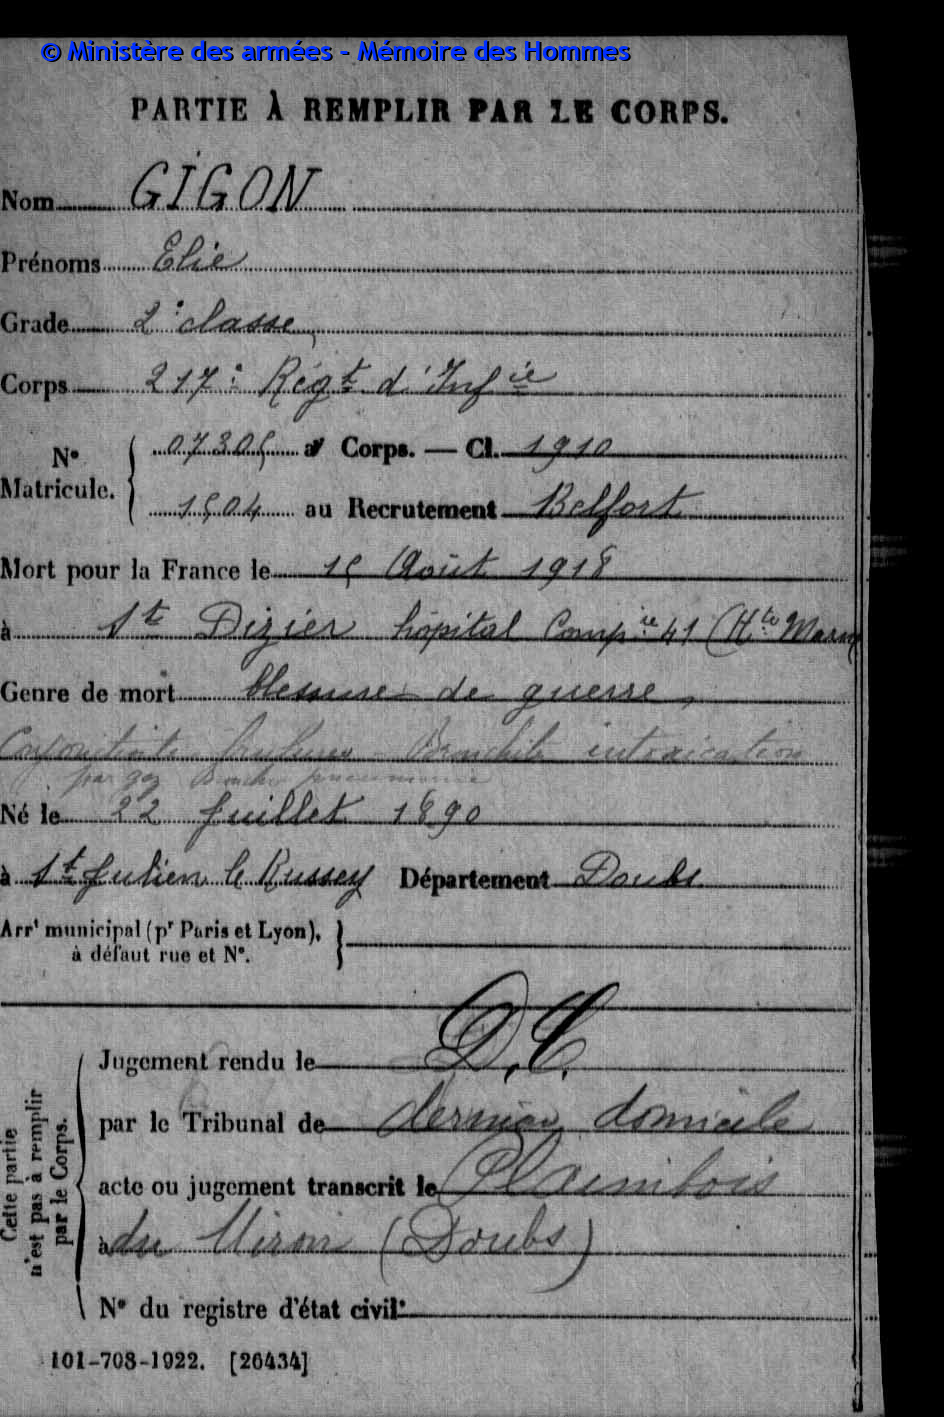 © Ministère des armées - Mémoire des Hommes
PARTIE À REMPLIR PAR LE CORPS.
Nom GIGON
Prénoms Elie
Grade 2e classe
Corps 217e Régt d'Infie
N° Matricule. { 07305 au Corps. — Cl. 1910
1504 au Recrutement Belfort
Mort pour la France le 15 Août 1918
à St Dizier hôpital Compre 41 (Hte Marne
Genre de mort blessure de guerre,
Conjonctivite brulures Bronchite intoxication
par gaz Broncho pneumonie
Né le 22 Juillet 1890
à St Julien le Russey Département Doubs
Arrt municipal (pr Paris et Lyon),
à défaut rue et N°. }
Cette partie n'est pas à remplir par le Corps.
Jugement rendu le D.C.
par le Tribunal de dernier domicile
acte ou jugement transcrit le Plaimbois
à du Miroir (Doubs)
N° du registre d'état civil
101-708-1922. [26434]